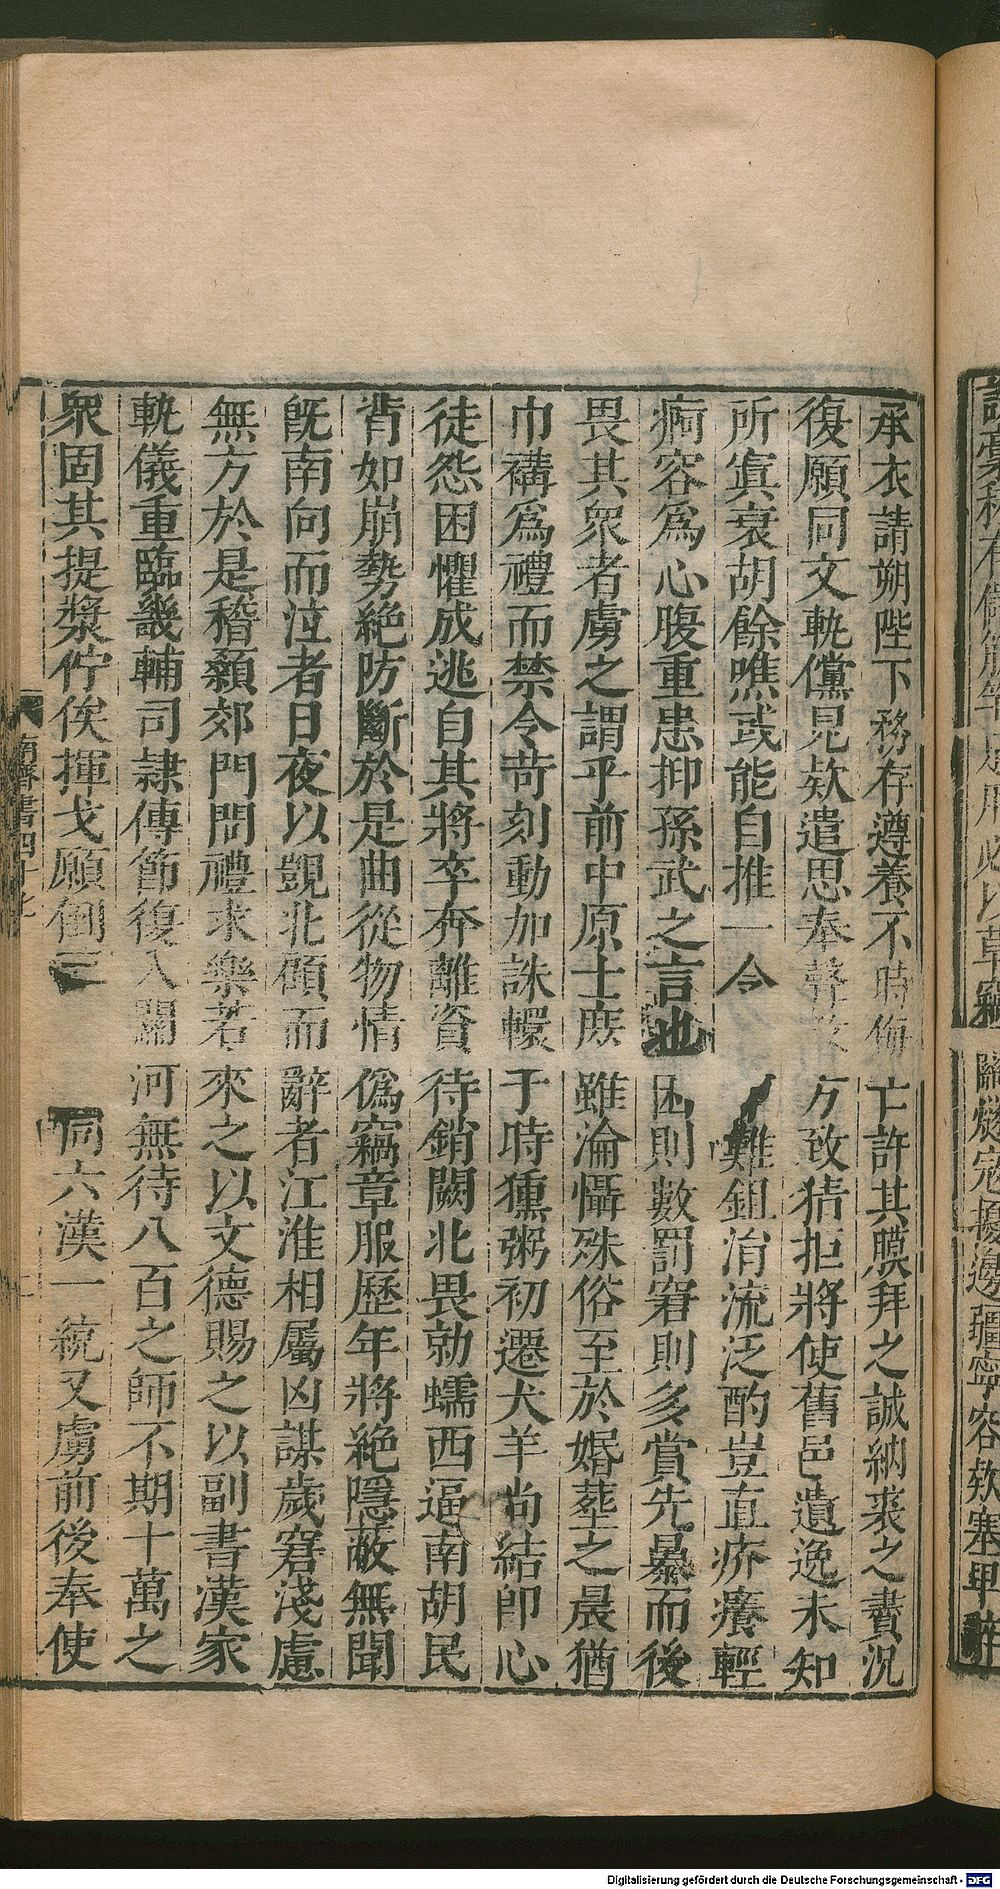 必以草竊關燧寇擾邊疆寧容款塞
承衣請朔陛下務存遵養不時侮亡許其膜拜之誠納裘之賮況
復願同文軌儻見款遣思奉聲教方致猜拒將使舊邑遺逸未知
所寘衰胡餘噍或能自推一令難鉏涓流泛酌豈直疥癢輕
痾容爲心腹重患抑孫武之言也困則數罰窘則多賞先暴而後
畏其衆者虜之謂乎前中原士庶雖淪懾殊俗至於婚葬之晨猶
巾褠爲禮而禁令苛刻動加誅轘于時獯粥初遷犬羊尚結即心
徒怨困懼成逃自其將卒奔離資待銷闕北畏勍蠕西逼南胡民
背如崩勢絶防斷於是曲從物情僞竊章服歷年將絶隱蔽無聞
旣南向而泣者日夜以覬北顧而辭者江淮相屬凶謀歲窘淺慮
無方於是稽顙郊門問禮求樂若來之以文德賜之以副書漢家
軌儀重臨畿輔司隷傳節復入關河無待八百之師不期十萬之
衆固其提漿佇俟揮戈願倒三同六漢一統又虜前後奉使
南齊書四十七